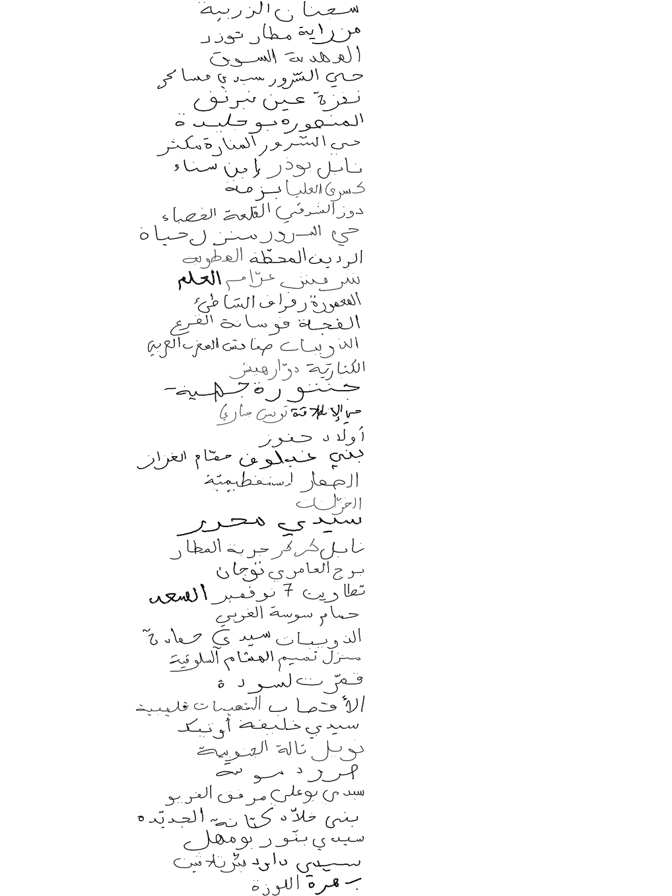 سجنان الزريبة
من راية مطار توزر
الوهدية السوق
حي السرور سيدي مسامحي
نفزة عين نبرنق
المنصورة بو حليمة
حي السرور المنارة مكثر
نابل بوذر ابن سناء
كسرى العليا بزمة
دوز الشرقي القلعة الفصاء
حي السرور منزل حياة
الرديف المحطة
عرام العلم
المعمورة رفراف الشاطئ
الفجة فوسانة القرع
الذويبات صفاقص المغرب العربي
الكنارية دوار هيش
جهينة
تونس
أولاد حفوز
بني غيلوف مقام الغراز
الصمار اسنفطيمية
سيدي محرر
نابل كركر جربة المطار
برج العامري توجان
تطاوين 7 نوفمبر السعد
حمام سوسة الغربي
الذويبات سيدي حمادة
منزل تميم الهشام السلوقية
قمرت لسودة
الأقصاب التعيبات قليبية
سيدي خليفة أوتيك
نويل تالة الجنوبية
سيدي بوعلي مرفق الغريو
بني خلاد كتانة الجديدة
سيدي بنور بومهل
سيدي داود بئر ثلاثين
بهرة اللوزة